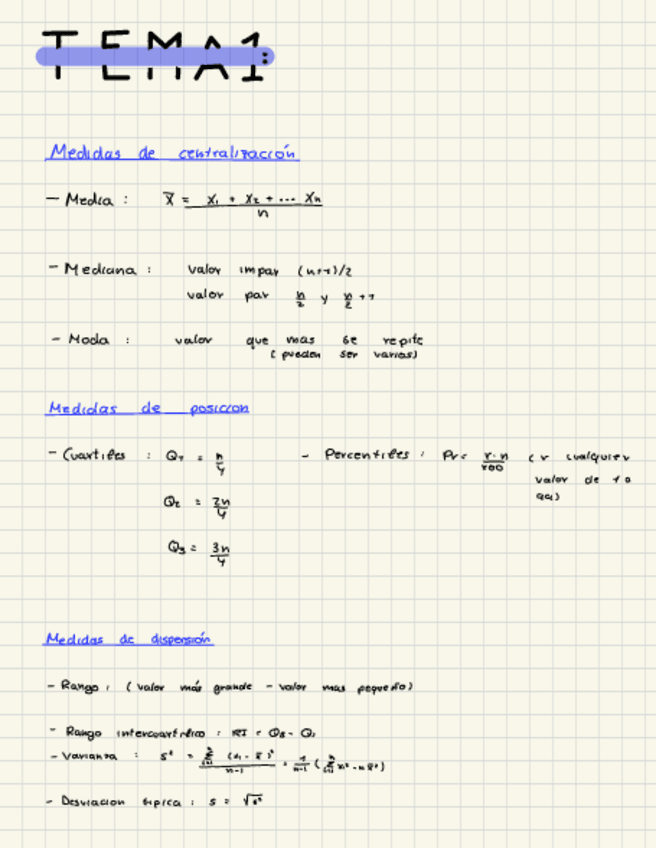 TEMA1:
Medidas de centralización
- Media : x̄ = (x₁ + x₂ + ... xₙ) / n
- Mediana : valor impar (n+1)/2
valor par n/2 y n/2 +1
- Moda : valor que mas se repite
(pueden ser varias)
Medidas de posicion
- Cuartiles : Q₁ = n/4 - Percentiles : Pr = r·n/100 (r cualquier
valor de 1 a
99)
Q₂ = 2n/4
Q₃ = 3n/4
Medidas de dispersión
- Rango : (valor más grande - valor mas pequeño)
- Rango intercuartílico : RI = Q₃ - Q₁
- Varianza : s² = Σⁿᵢ₌₁ (xᵢ - x̄)² / n-1 = 1/n-1 (Σⁿᵢ₌₁ xᵢ² - n x̄²)
- Desviacion tipica : s = √s²